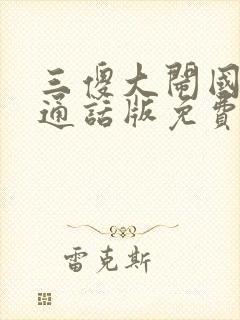 三傻大鬧國
通話版免費
雷克斯